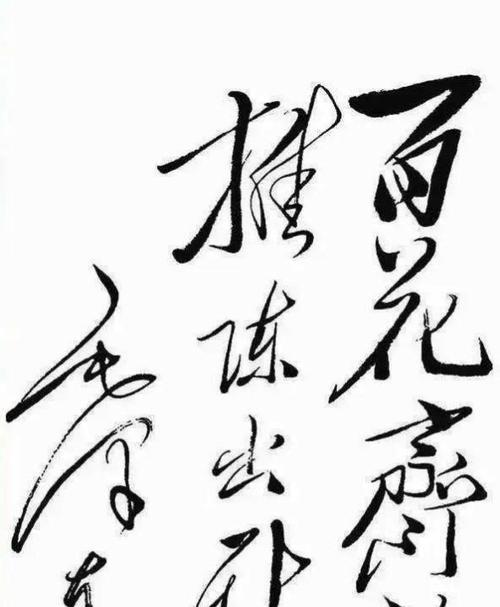 百花齊
推陈出新
毛泽东